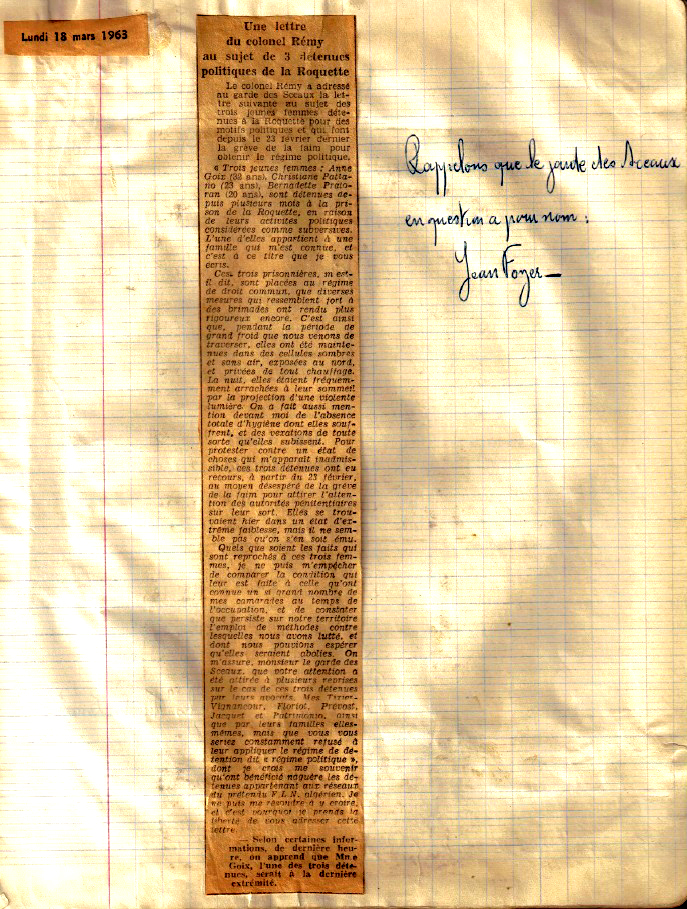 Lundi 18 mars 1963
Une lettre
du colonel Rémy
au sujet de 3 détenues
politiques de la Roquette
Le colonel Rémy a adressé
au garde des Sceaux la let-
tre suivante au sujet des
trois jeunes femmes déte-
nues à la Roquette pour des
motifs politiques et qui font
depuis le 23 février dernier
la grève de la faim pour
obtenir le régime politique.
« Trois jeunes femmes : Anne
Goix (32 ans), Christiane Patta-
no (23 ans), Bernadette
ran (20 ans), sont détenues de-
puis plusieurs mois à la pri-
son de la Roquette, en raison
de leurs activités politiques
considérées comme subversives.
L'une d'elles appartient à une
famille qui m'est connue, et
c'est à ce titre que je vous
écris.
Ces trois prisonnières, m'est-
il dit, sont placées au régime
de droit commun, que diverses
mesures qui ressemblent fort à
des brimades ont rendu plus
rigoureux encore. C'est ainsi
que, pendant la période de
grand froid que nous venons de
traverser, elles ont été mainte-
nues dans des cellules sombres
et sans air, exposées au nord,
et privées de tout chauffage.
La nuit, elles étaient fréquem-
ment arrachées à leur sommeil
par la projection d'une violente
lumière. On a fait aussi men-
tion devant moi de l'absence
totale d'hygiène dont elles souf-
frent, et des vexations de toute
sorte qu'elles subissent. Pour
protester contre un état de
choses qui m'apparaît inadmis-
sible, ces trois détenues ont eu
recours, à partir du 23 février,
au moyen désespéré de la grève
de la faim pour attirer l'atten-
tion des autorités pénitentiaires
sur leur sort. Elles se trou-
vaient hier dans un état d'ex-
trême faiblesse, mais il ne sem-
ble pas qu'on s'en soit ému.
Quels que soient les faits qui
sont reprochés à ces trois fem-
mes, je ne puis m'empêcher
de comparer la condition qui
leur est faite à celle qu'ont
connue un si grand nombre de
mes camarades au temps de
l'occupation, et de constater
que persiste sur notre territoire
l'emploi de méthodes contre
lesquelles nous avons lutté, et
dont nous pouvions espérer
qu'elles seraient abolies. On
m'assure, monsieur le garde des
Sceaux, que votre attention a
été attirée à plusieurs reprises
sur le cas de ces trois détenues
par leurs avocats, Mes Tixier-
Vignancour, Floriot, Prévost,
Jacquet et Patrimonio, ainsi
que par leurs familles elles-
mêmes, mais que vous vous
seriez constamment refusé à
leur appliquer le régime de dé-
tention dit « régime politique »,
dont je crois me souvenir
qu'ont bénéficié naguère les dé-
tenues appartenant aux réseaux
du prétendu F.L.N. algérien. Je
ne puis me résoudre à y croire,
et c'est pourquoi je prends la
liberté de vous adresser cette
lettre.
— Selon certaines infor-
mations, de dernière heu-
re, on apprend que Mme
Goix, l'une des trois déte-
nues, serait à la dernière
extrémité.
Rappelons que le garde des Sceaux
en question a pour nom :
Jean Foyer —